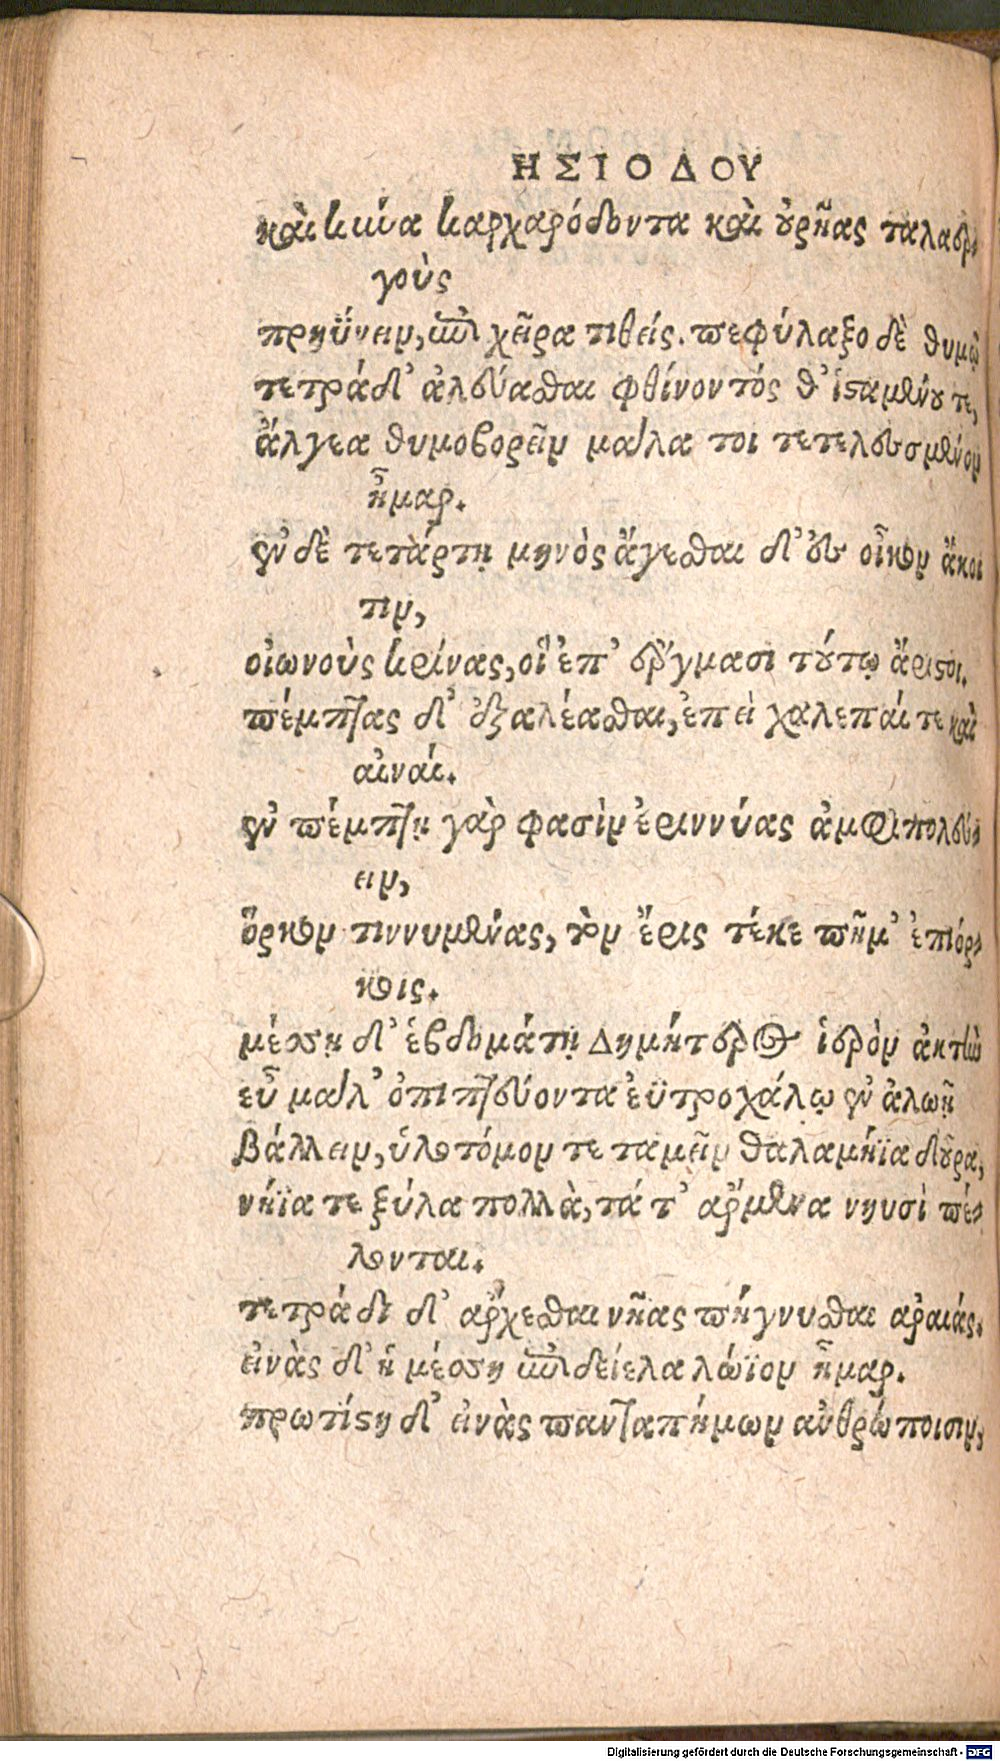 ΗΣΙΟΔΟΥ
καὶ κύνα καρχαρόδοντα καὶ οὐρῆας ταλαερ-
γοὺς
πρηΰνειν, ἐπὶ χεῖρα τιθείς. πεφύλαξο δὲ θυμῷ
τετράδ' ἀλεύασθαι φθίνοντός θ' ἱσταμένου τε,
ἄλγεα θυμοβορεῖν μάλα τοι τετελεσμένον
ἦμαρ.
ἐν δὲ τετάρτῃ μηνὸς ἄγεσθαι δ' εἰς οἶκον ἄκοι
τιν,
οἰωνοὺς κρίνας, οἳ ἐπ' ἔργμασι τούτῳ ἄριστοι.
πέμπτας δ' ἐξαλέασθαι, ἐπεὶ χαλεπαί τε καὶ
αἰναί.
ἐν πέμπτῃ γάρ φασὶν ἐριννύας ἀμφιπολεύ-
ειν,
ὅρκον τιννυμένας, τὸν ἔρις τέκε πῆμ' ἐπιόρ-
κοις.
μέσσῃ δ' ἑβδομάτῃ Δημήτερος ἱερὸν ἀκτὴν
εὖ μάλ' ὀπιπτεύοντα ἐϋτροχάλῳ ἐν ἀλωῇ
βάλλειν, ὑλοτόμον τε ταμεῖν θαλαμήϊα δοῦρα,
νήϊα τε ξύλα πολλὰ, τά τ' ἄρμενα νηυσὶ πέ-
λονται.
τετράδι δ' ἄρχεσθαι νῆας πήγνυσθαι ἀραιάς.
εἰνὰς δ' ἡ μέσση ἐπὶ δείελα λώϊον ἦμαρ.
πρωτίστη δ' εἰνὰς παντ' ἀπήμων ἀνθρώποισιν,
Digitalisierung gefördert durch die Deutsche Forschungsgemeinschaft - DFG